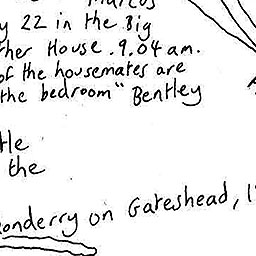 Marcos
y 22 in the Big
ther House. 9.04 am.
of the housemates are
the bedroom" Bentley
tle
the
onderry on Gateshead, I'